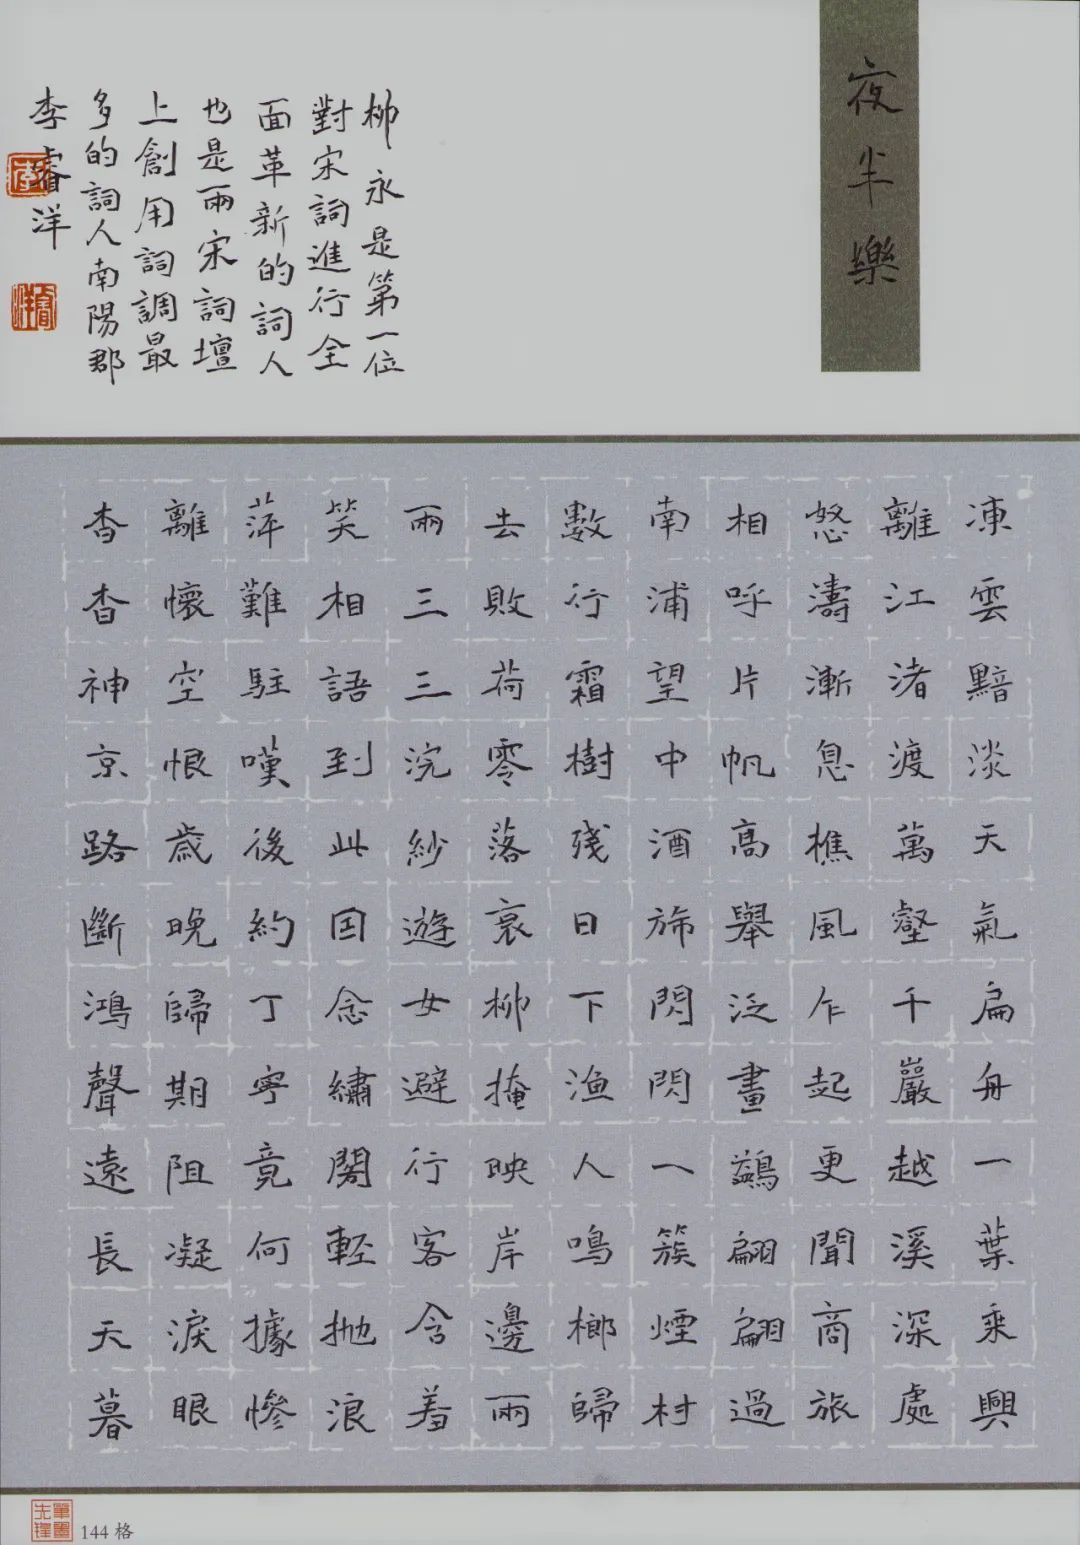 夜半樂
柳永是第一位
對宋詞進行全
面革新的詞人
也是兩宋詞壇
上創用詞調最
多的詞人南陽郡
李睿洋
凍雲黯淡天氣扁舟一葉乘興
離江渚渡萬壑千巖越溪深處
怒濤漸息樵風乍起更聞商旅
相呼片帆高舉泛畫鷁翩翩過
南浦望中酒旆閃閃一簇煙村
數行霜樹殘日下漁人鳴榔歸
去敗荷零落衰柳掩映岸邊兩
兩三三浣紗遊女避行客含羞
笑相語到此因念繡閣輕拋浪
萍難駐嘆後約丁寧竟何據慘
離懷空恨歲晚歸期阻凝淚眼
杳杳神京路斷鴻聲遠長天暮
144格